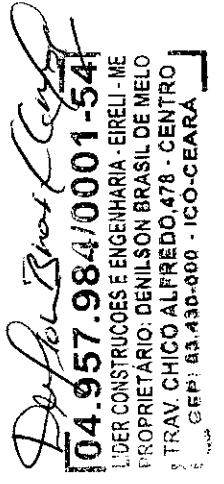 Denilson Brasil de Melo
04.957.984/0001-54
LIDER CONSTRUCOES E ENGENHARIA - EIRELI - ME
PROPRIETÁRIO: DENILSON BRASIL DE MELO
TRAV. CHICO ALFREDO, 478 - CENTRO
CEP: 63.430-000 - ICÓ-CEARÁ